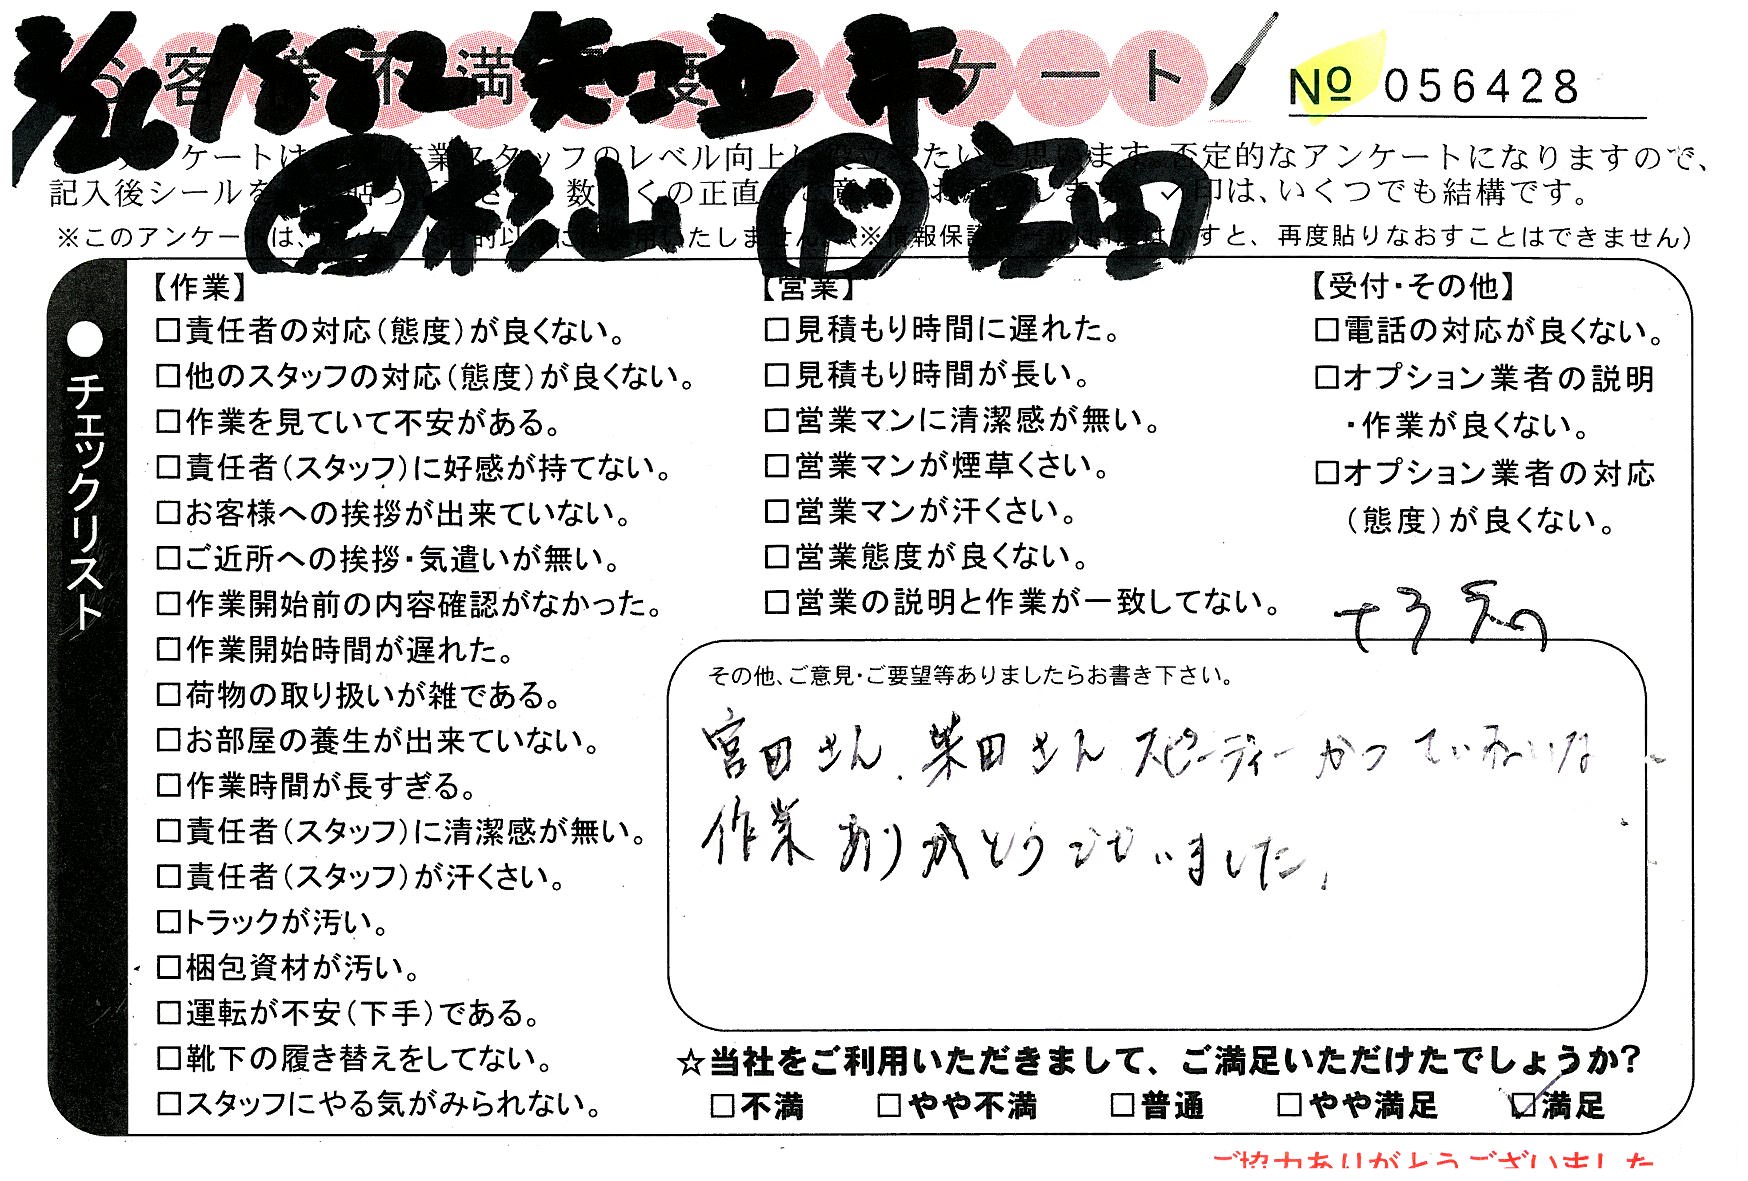 3/26 1882 知立市
客様不満度ケート
№ 056428
営杉山 ド宮田
ケートは 作業スタッフのレベル向上に役立 たいと思います。否定的なアンケートになりますので、
記入後シールを 貼っ さ 数 くの正直 意 お し ま ✓印は、いくつでも結構です。
※このアンケートは、アンケート目的以 に いたしません (※情報保護 はがすと、再度貼りなおすことはできません)
チェックリスト
【作業】
□責任者の対応(態度)が良くない。
□他のスタッフの対応(態度)が良くない。
□作業を見ていて不安がある。
□責任者(スタッフ)に好感が持てない。
□お客様への挨拶が出来ていない。
□ご近所への挨拶・気遣いが無い。
□作業開始前の内容確認がなかった。
□作業開始時間が遅れた。
□荷物の取り扱いが雑である。
□お部屋の養生が出来ていない。
□作業時間が長すぎる。
□責任者(スタッフ)に清潔感が無い。
□責任者(スタッフ)が汗くさい。
□トラックが汚い。
□梱包資材が汚い。
□運転が不安(下手)である。
□靴下の履き替えをしてない。
□スタッフにやる気がみられない。
【営業】
□見積もり時間に遅れた。
□見積もり時間が長い。
□営業マンに清潔感が無い。
□営業マンが煙草くさい。
□営業マンが汗くさい。
□営業態度が良くない。
□営業の説明と作業が一致してない。
【受付・その他】
□電話の対応が良くない。
□オプション業者の説明
・作業が良くない。
□オプション業者の対応
(態度)が良くない。
その他、ご意見・ご要望等ありましたらお書き下さい。
宮田さん、柴田さん スピーディー かつ ていねいな
作業 ありがとうございました。
☆当社をご利用いただきまして、ご満足いただけたでしょうか?
□不満 □やや不満 □普通 □やや満足 ☑満足
ご協力ありがとうございました